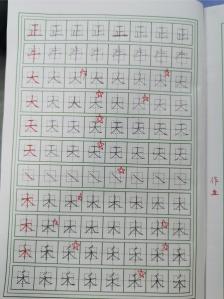 正 正 正 正 正 正 正 正
牛 牛 牛 牛 牛 牛 牛 牛
大 大 大 大 大 大 大 大
大 大 大 大 大 大 大 大
天 天 天 天 天 天 天 天
天 天 天 天 天 天 天 天
㇏ ㇏ ㇏ ㇏ ㇏ ㇏ ㇏ ㇏
木 木 木 木 木 木 木 木
木 木 木 木 木 木 木 木
禾 禾 禾 禾 禾 禾 禾 禾
禾 禾 禾 禾 禾 禾 禾 禾